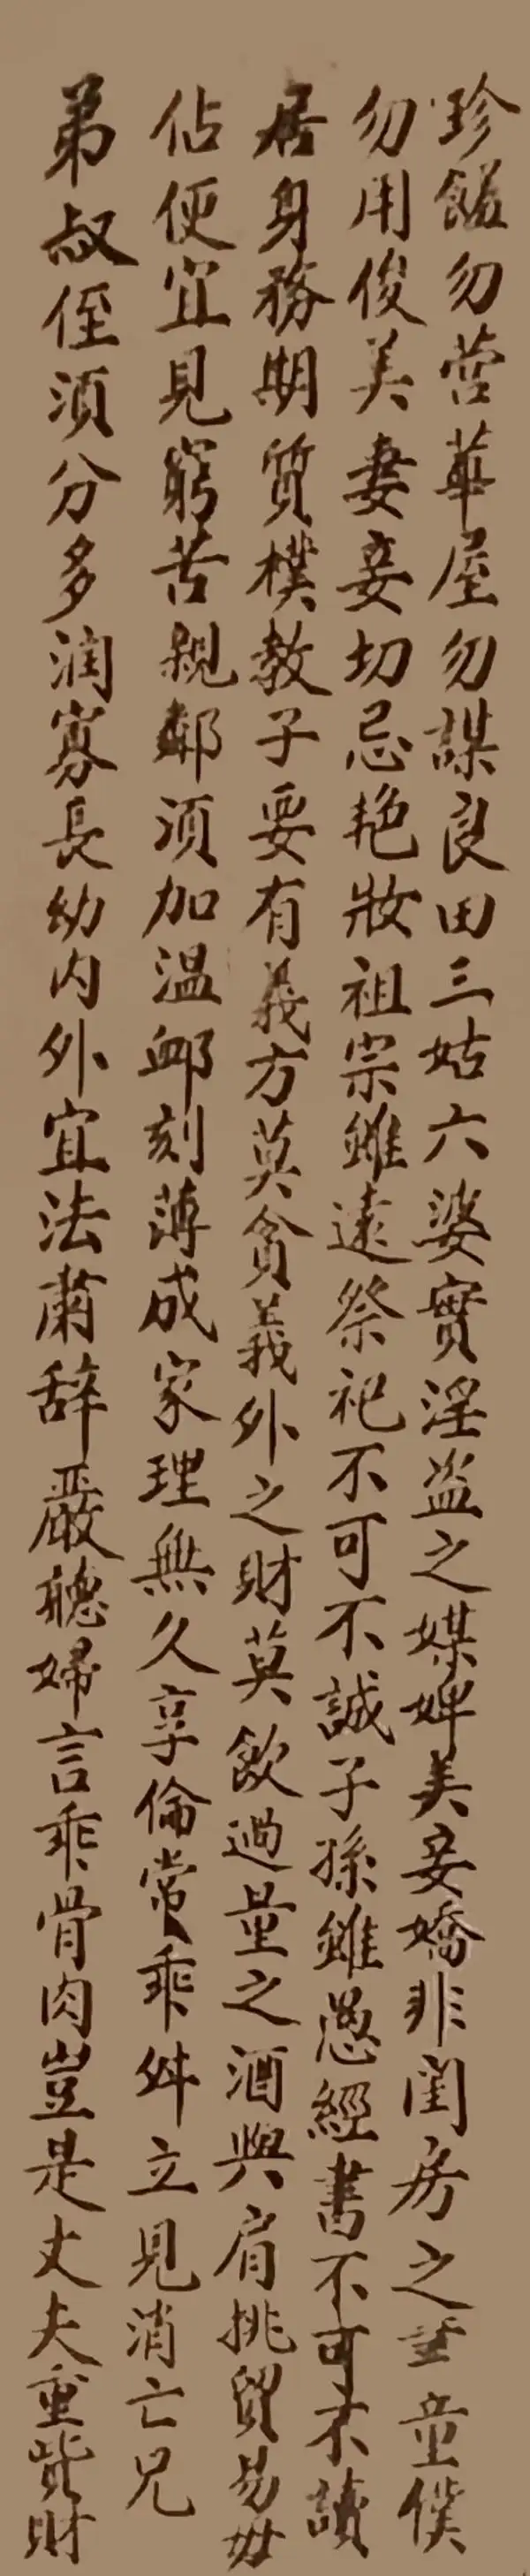 珍饈勿营華屋勿謀良田三姑六婆實淫盗之媒婢美妾嬌非閨房之童僕
勿用俊美妻妾切忌艳妝祖宗雖遠祭祀不可不誠子孫雖愚經書不可不讀
居身務期質樸教子要有義方莫貪義外之財莫飲過量之酒與肩挑貿易毋
佔便宜見窮苦親鄰須加温卹刻薄成家理無久享倫常乖舛立見消亡兄
弟叔侄須分多润寡長幼内外宜法肅辞嚴聽婦言乖骨肉豈是丈夫重貲財